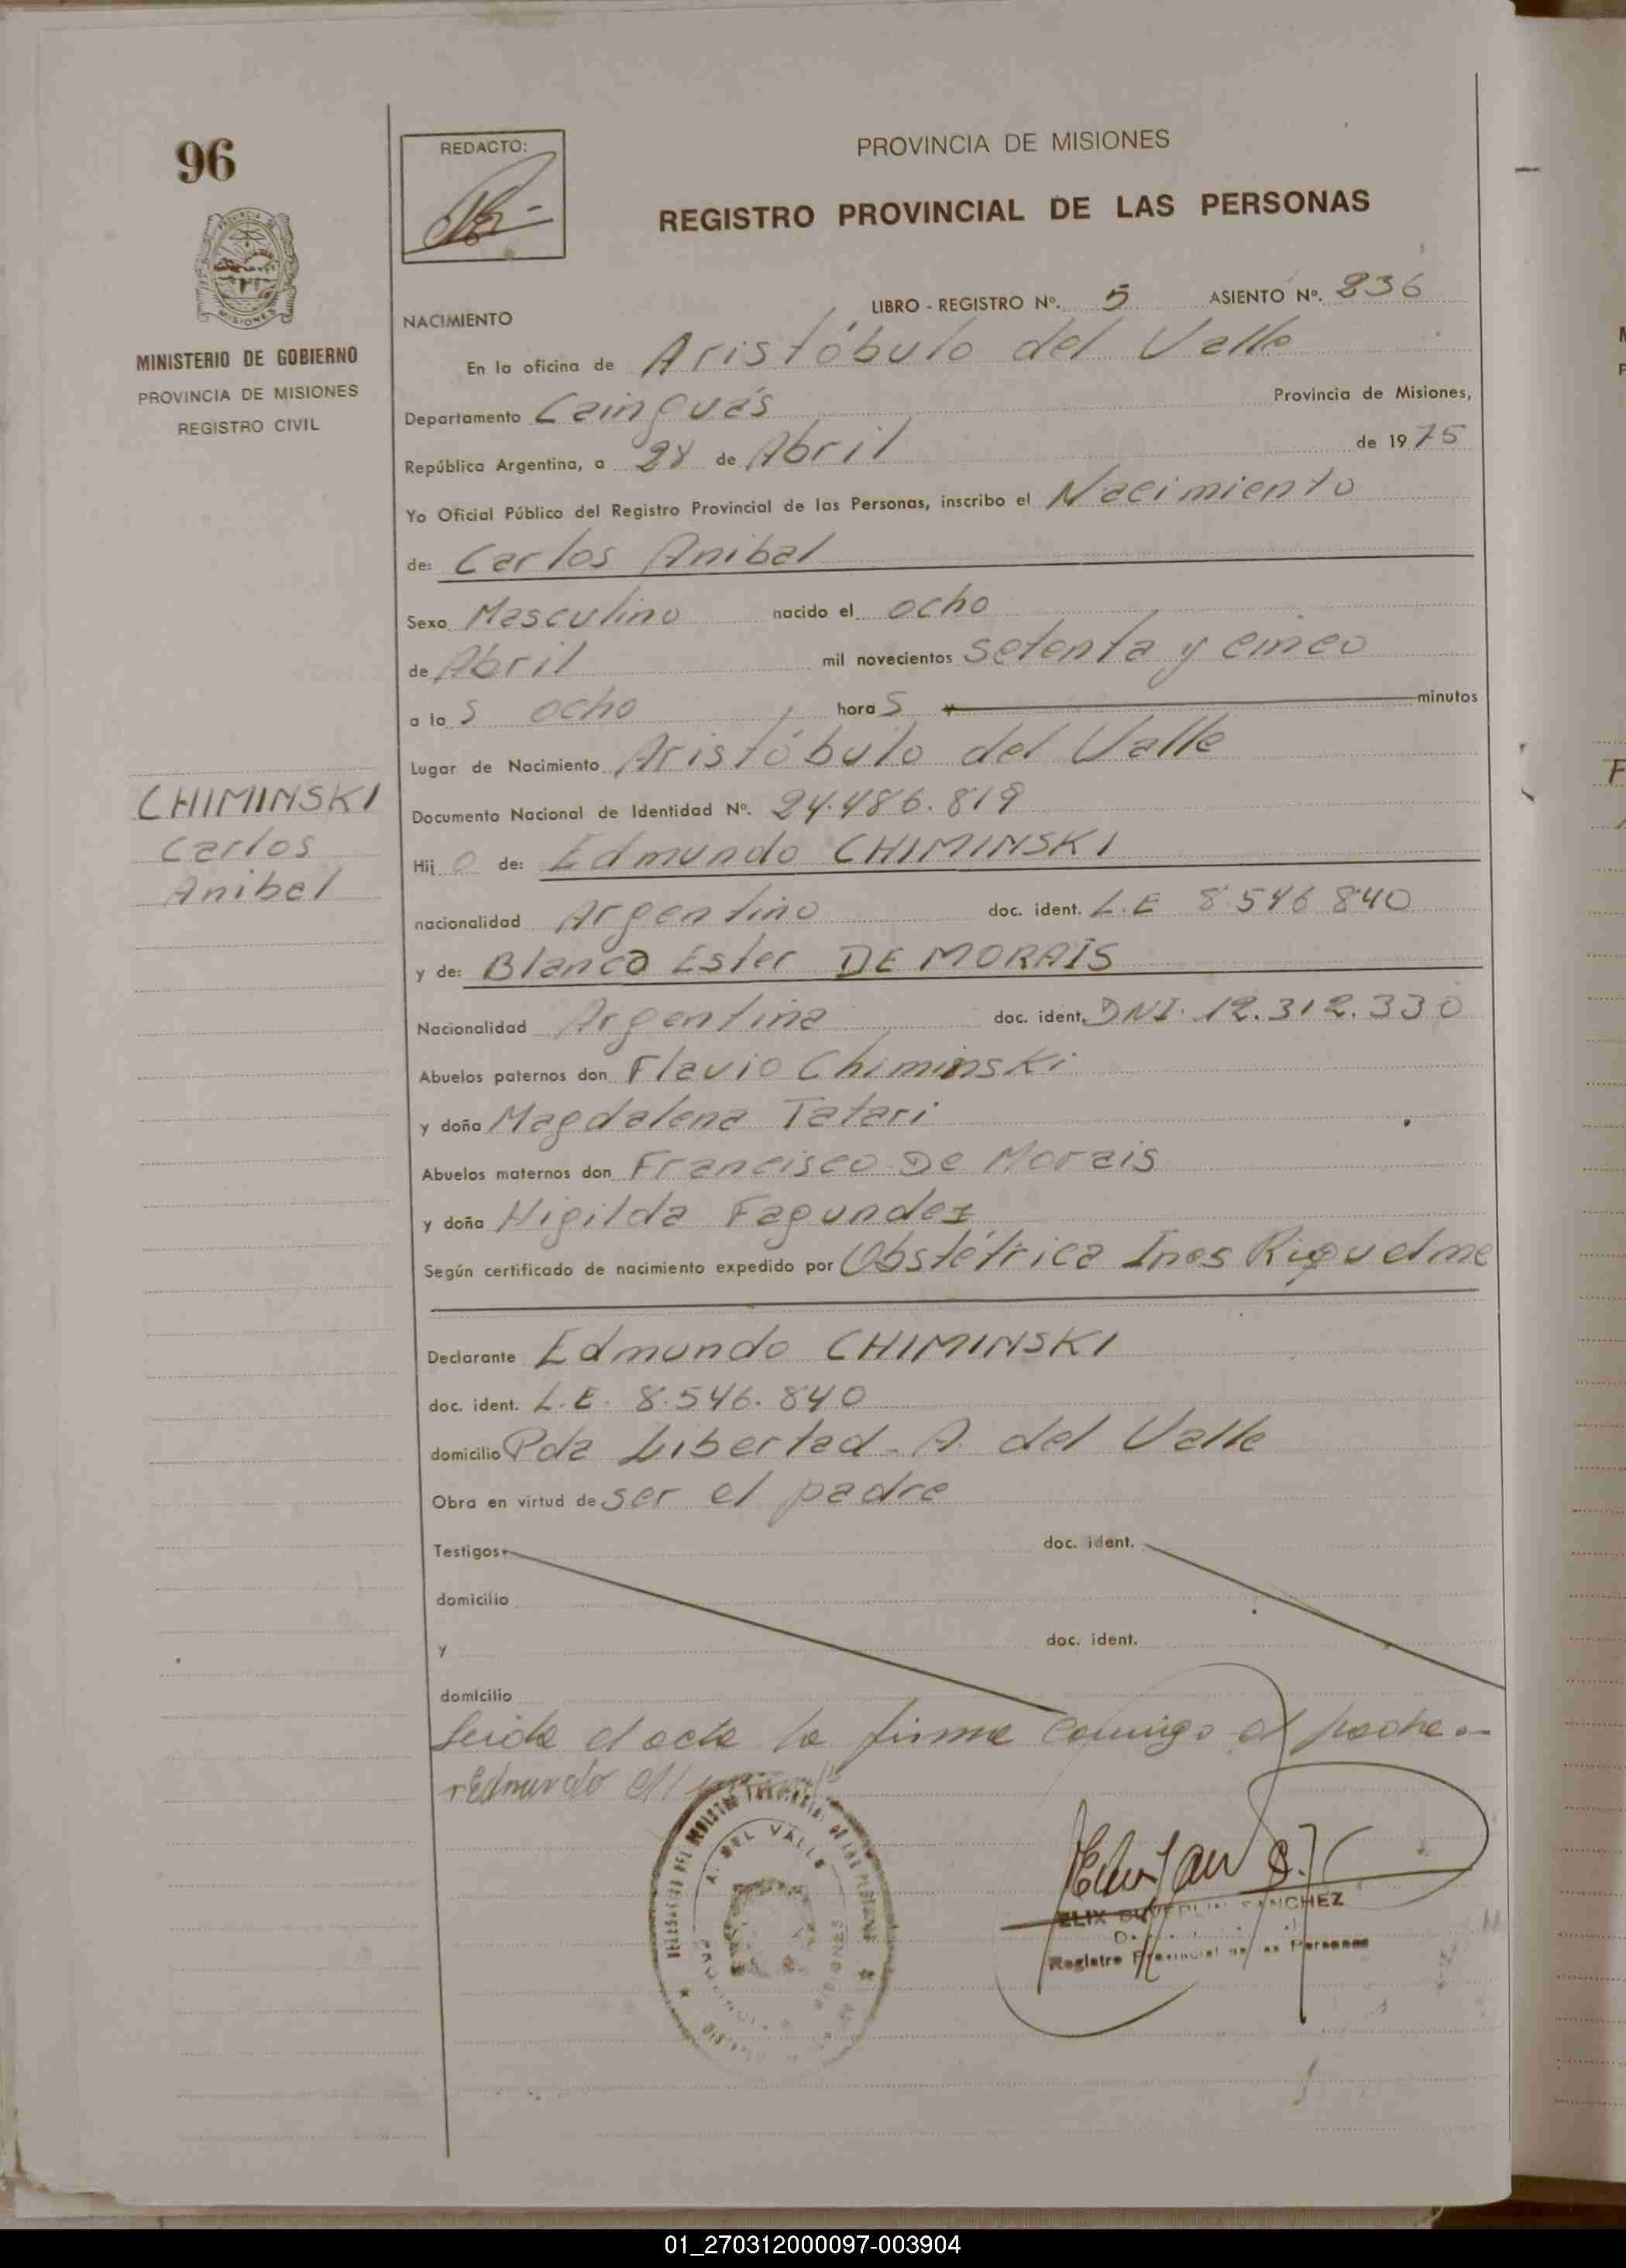 96
REDACTO:
PROVINCIA DE MISIONES
REGISTRO PROVINCIAL DE LAS PERSONAS
MISIONES
MINISTERIO DE GOBIERNO
PROVINCIA DE MISIONES
REGISTRO CIVIL
LIBRO - REGISTRO Nº. 5 ASIENTO Nº. 836
NACIMIENTO
En la oficina de Aristóbulo del Valle
Departamento Cainguás Provincia de Misiones,
República Argentina, a 28 de Abril de 1975
Yo Oficial Público del Registro Provincial de las Personas, inscribo el Nacimiento
de: Carlos Anibal
Sexo Masculino nacido el ocho
de Abril mil novecientos setenta y cinco
a las ocho horas y minutos
Lugar de Nacimiento Aristóbulo del Valle
CHIMINSKI
Carlos
Anibal
Documento Nacional de Identidad Nº. 24.486.819
Hijo de: Edmundo CHIMINSKI
nacionalidad Argentino doc. ident. L.E 8.546.840
y de: Blanca Ester DE MORAIS
Nacionalidad Argentina doc. ident. DNI. 12.312.330
Abuelos paternos don Flavio Chiminski
y doña Magdalena Tatari
Abuelos maternos don Francisco De Morais
y doña Higilda Fagundez
Según certificado de nacimiento expedido por Obstétrica Ines Riquelme
Declarante Edmundo CHIMINSKI
doc. ident. L.E. 8.546.840
domicilio Pda Libertad - A. del Valle
Obra en virtud de ser el padre
Testigos doc. ident.
domicilio
y doc. ident.
domicilio
Leida el acta la firma conmigo el padre.-
Edmundo
A. DEL VALLE
PROVINCIA MISIONES
SANCHEZ
Registro Provincial de las Personas
01_270312000097-003904